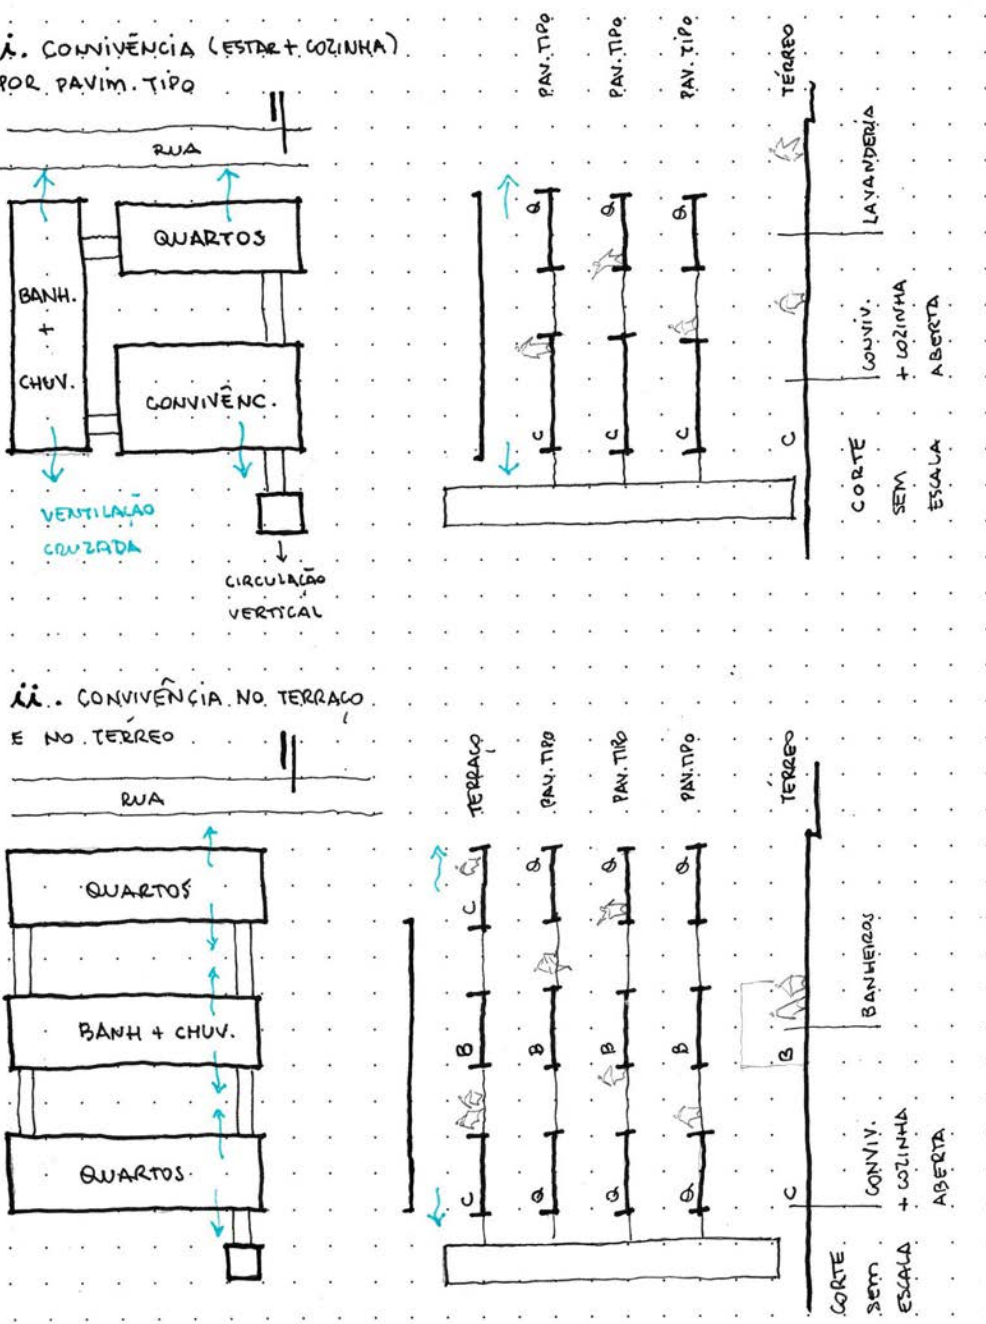 i. CONVIVÊNCIA (ESTAR + COZINHA)
POR PAVIM. TIPO
RUA
QUARTOS
BANH.
+
CHUV.
CONVIVÊNC.
VENTILAÇÃO
CRUZADA
CIRCULAÇÃO
VERTICAL
PAV. TIPO
PAV. TIPO
PAV. TIPO
TÉRREO
Q
Q
Q
C
C
C
C
LAVANDERIA
CONVIV.
+ COZINHA
ABERTA
CORTE
SEM
ESCALA
ii. CONVIVÊNCIA NO TERRAÇO
E NO TÉRREO
RUA
QUARTOS
BANH + CHUV.
QUARTOS
TERRAÇO
PAV. TIPO
PAV. TIPO
PAV. TIPO
TÉRREO
C
Q
Q
Q
B
B
B
B
B
C
Q
Q
Q
C
BANHEIROS
CONVIV.
+ COZINHA
ABERTA
CORTE
SEM
ESCALA